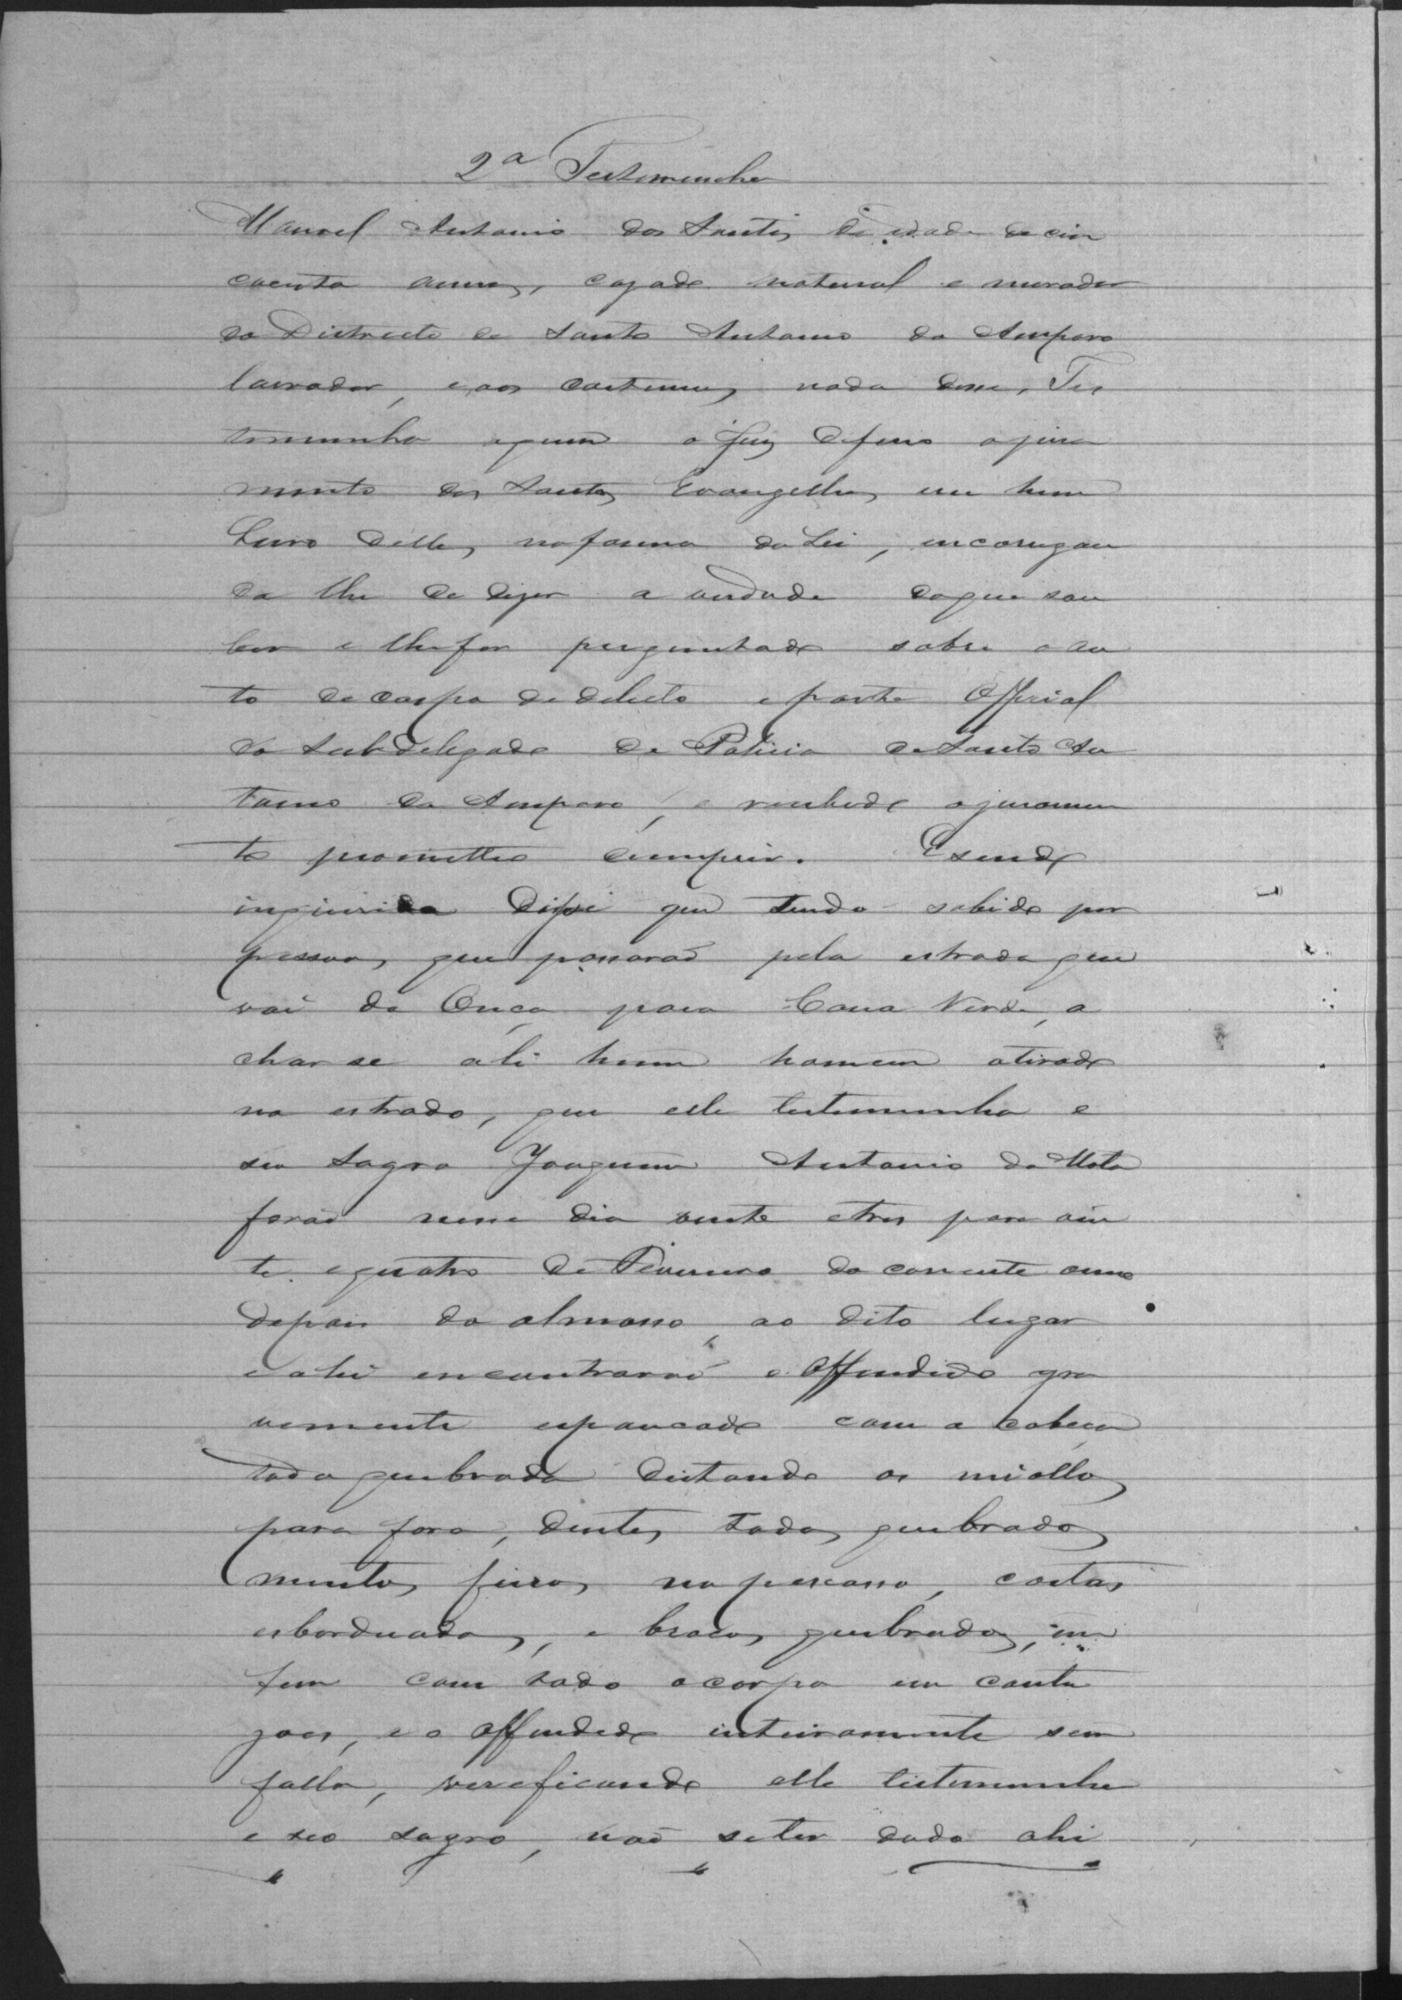 2ª Testemunha
Manoel Antonio dos Santos de idade de cin
coenta annos, cazado natural e morador
do Districto de Santo Antonio do Amparo
lavrador, e aos costumes nada disse, Tes
temunha aquem o Juiz deferio o jura
mento dos Santos Evangelhos em hum
Livro delles na forma da Lei, encarregan
do lhe de dizer a verdade do que sou
ber e lhe for perguntado sobre o au
to de corpo de delicto e parte Official
do Subdelegado de Policia de Santo An
tonio do Amparo, e recebido o juramen
to prometteo cumprir. E sendo
inquirida disse que tendo sabido por
pessoas que passarão pela estrada que
vai da Onça para Cana Verde, a
char se ali hum homem atirado
na estrada, que elle testemunha e
seo sogro Joaquim Antonio da Mota
forão nesse dia vinte e tres para vin
te e quatro de Fevereiro do corrente anno
depois do almosso, ao dito lugar
e ahi encontrarão o Offendido gra
vemente espancado com a cabeça
toda quebrada deitando os miollos
para fora, dentes todos quebrados
muitos furos no pescosso, costas
esborduadas, e braços quebrados, em
fim com todo o corpo em contu
zoes, e o Offendido inteiramente sem
falla, verificando elle testemunha
e seo sogro, não se ter dado ahi